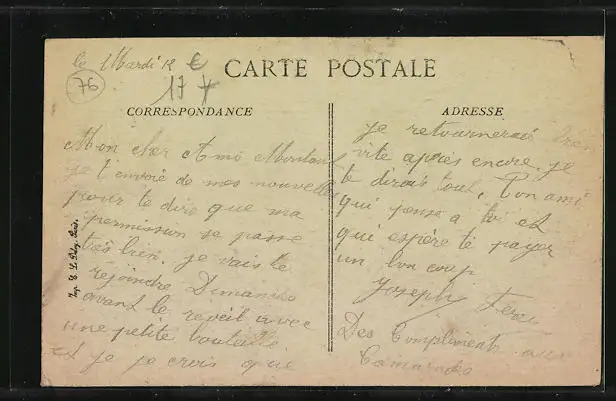 le Mardi 12
76
17
CARTE POSTALE
CORRESPONDANCE
Mon cher Ami
je t'envoie de mes nouvelles
pour te dire que ma
permission se passe
très bien. je vais te
rejoindre Dimanche
avant le reveil avec
une petite bouteille
et je je crois que
ADRESSE
je retournerai bien
vite après encore je
te dirais tout, Ton ami
qui pense a toi et
qui espère te payer
un bon coup
Joseph
Des Compliments aux
Camarades